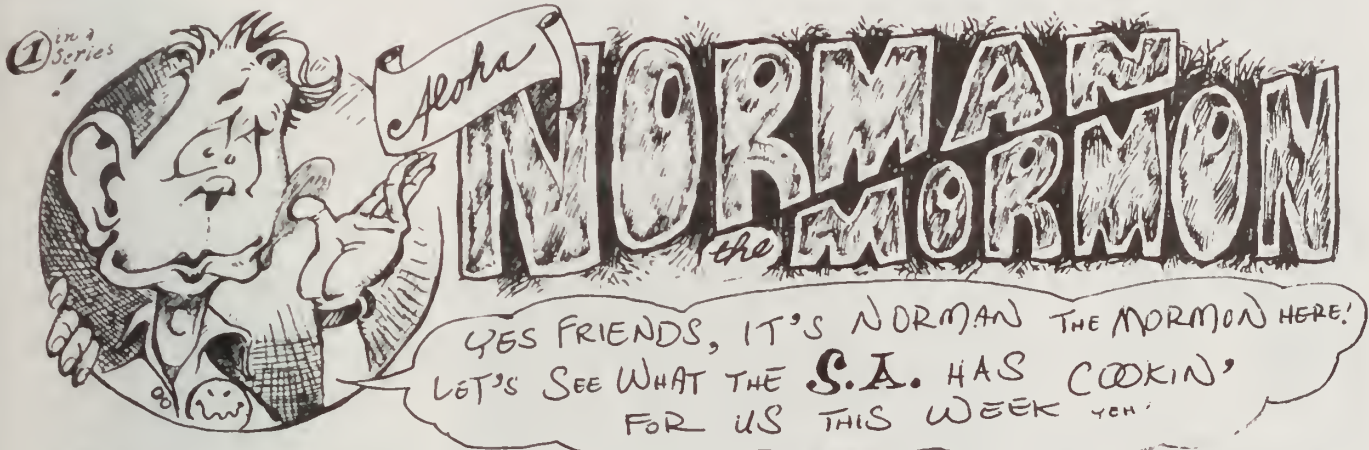 1 in a
Series
!
Aloha
NORMAN
the MORMON
YES FRIENDS, IT'S NORMAN THE MORMON HERE!
LET'S SEE WHAT THE S.A. HAS COOKIN'
FOR US THIS WEEK YEH!